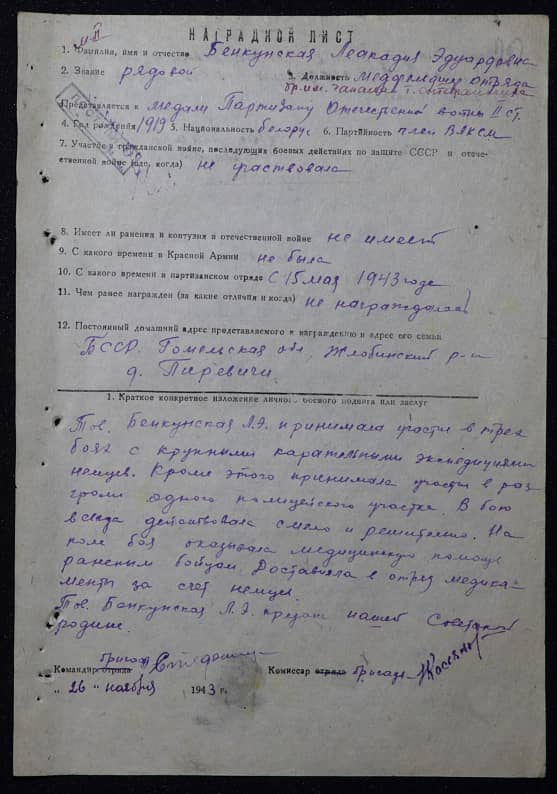 НАГРАДНОЙ ЛИСТ
1. Фамилия, имя и отчество Бенкунская Леакадия Эдуардовна
2. Звание рядовой 3. Должность Медфельдшер отряда
бр. им. Чапаева
Представляется к медали Партизану Отечественной войны II ст.
4. Год рождения 1919 5. Национальность белорус 6. Партийность член ВЛКСМ
7. Участие в гражданской войне, последующих боевых действиях по защите СССР и отече-
ственной войне (где, когда) не участвовала
8. Имеет ли ранения и контузии в отечественной войне не имеет
9. С какого времени в Красной Армии не была
10. С какого времени в партизанском отряде с 15 мая 1943 года
11. Чем ранее награжден (за какие отличия и когда) не награждалась
12. Постоянный домашний адрес представляемого к награждению и адрес его семьи
БССР. Гомельская обл, Жлобинский р-н
д. Пиревичи
1. Краткое конкретное изложение личного боевого подвига или заслуг
Тов. Бенкунская Л.Э. принимала участие в трех
боях с крупными карательными экспедициями
немцев. Кроме этого принимала участие в раз
громе одного полицейского участка. В бою
всегда действовала смело и решительно. На
поле боя оказывала медицинскую помощь
раненым бойцам. Доставляла в отряд медика-
менты за счет немцев.
Тов. Бенкунская Л.Э. предана нашей Советской
родине.
бригады
Командир отряда Комиссар отряда бригады
„ 26 „ ноября 1943 г.